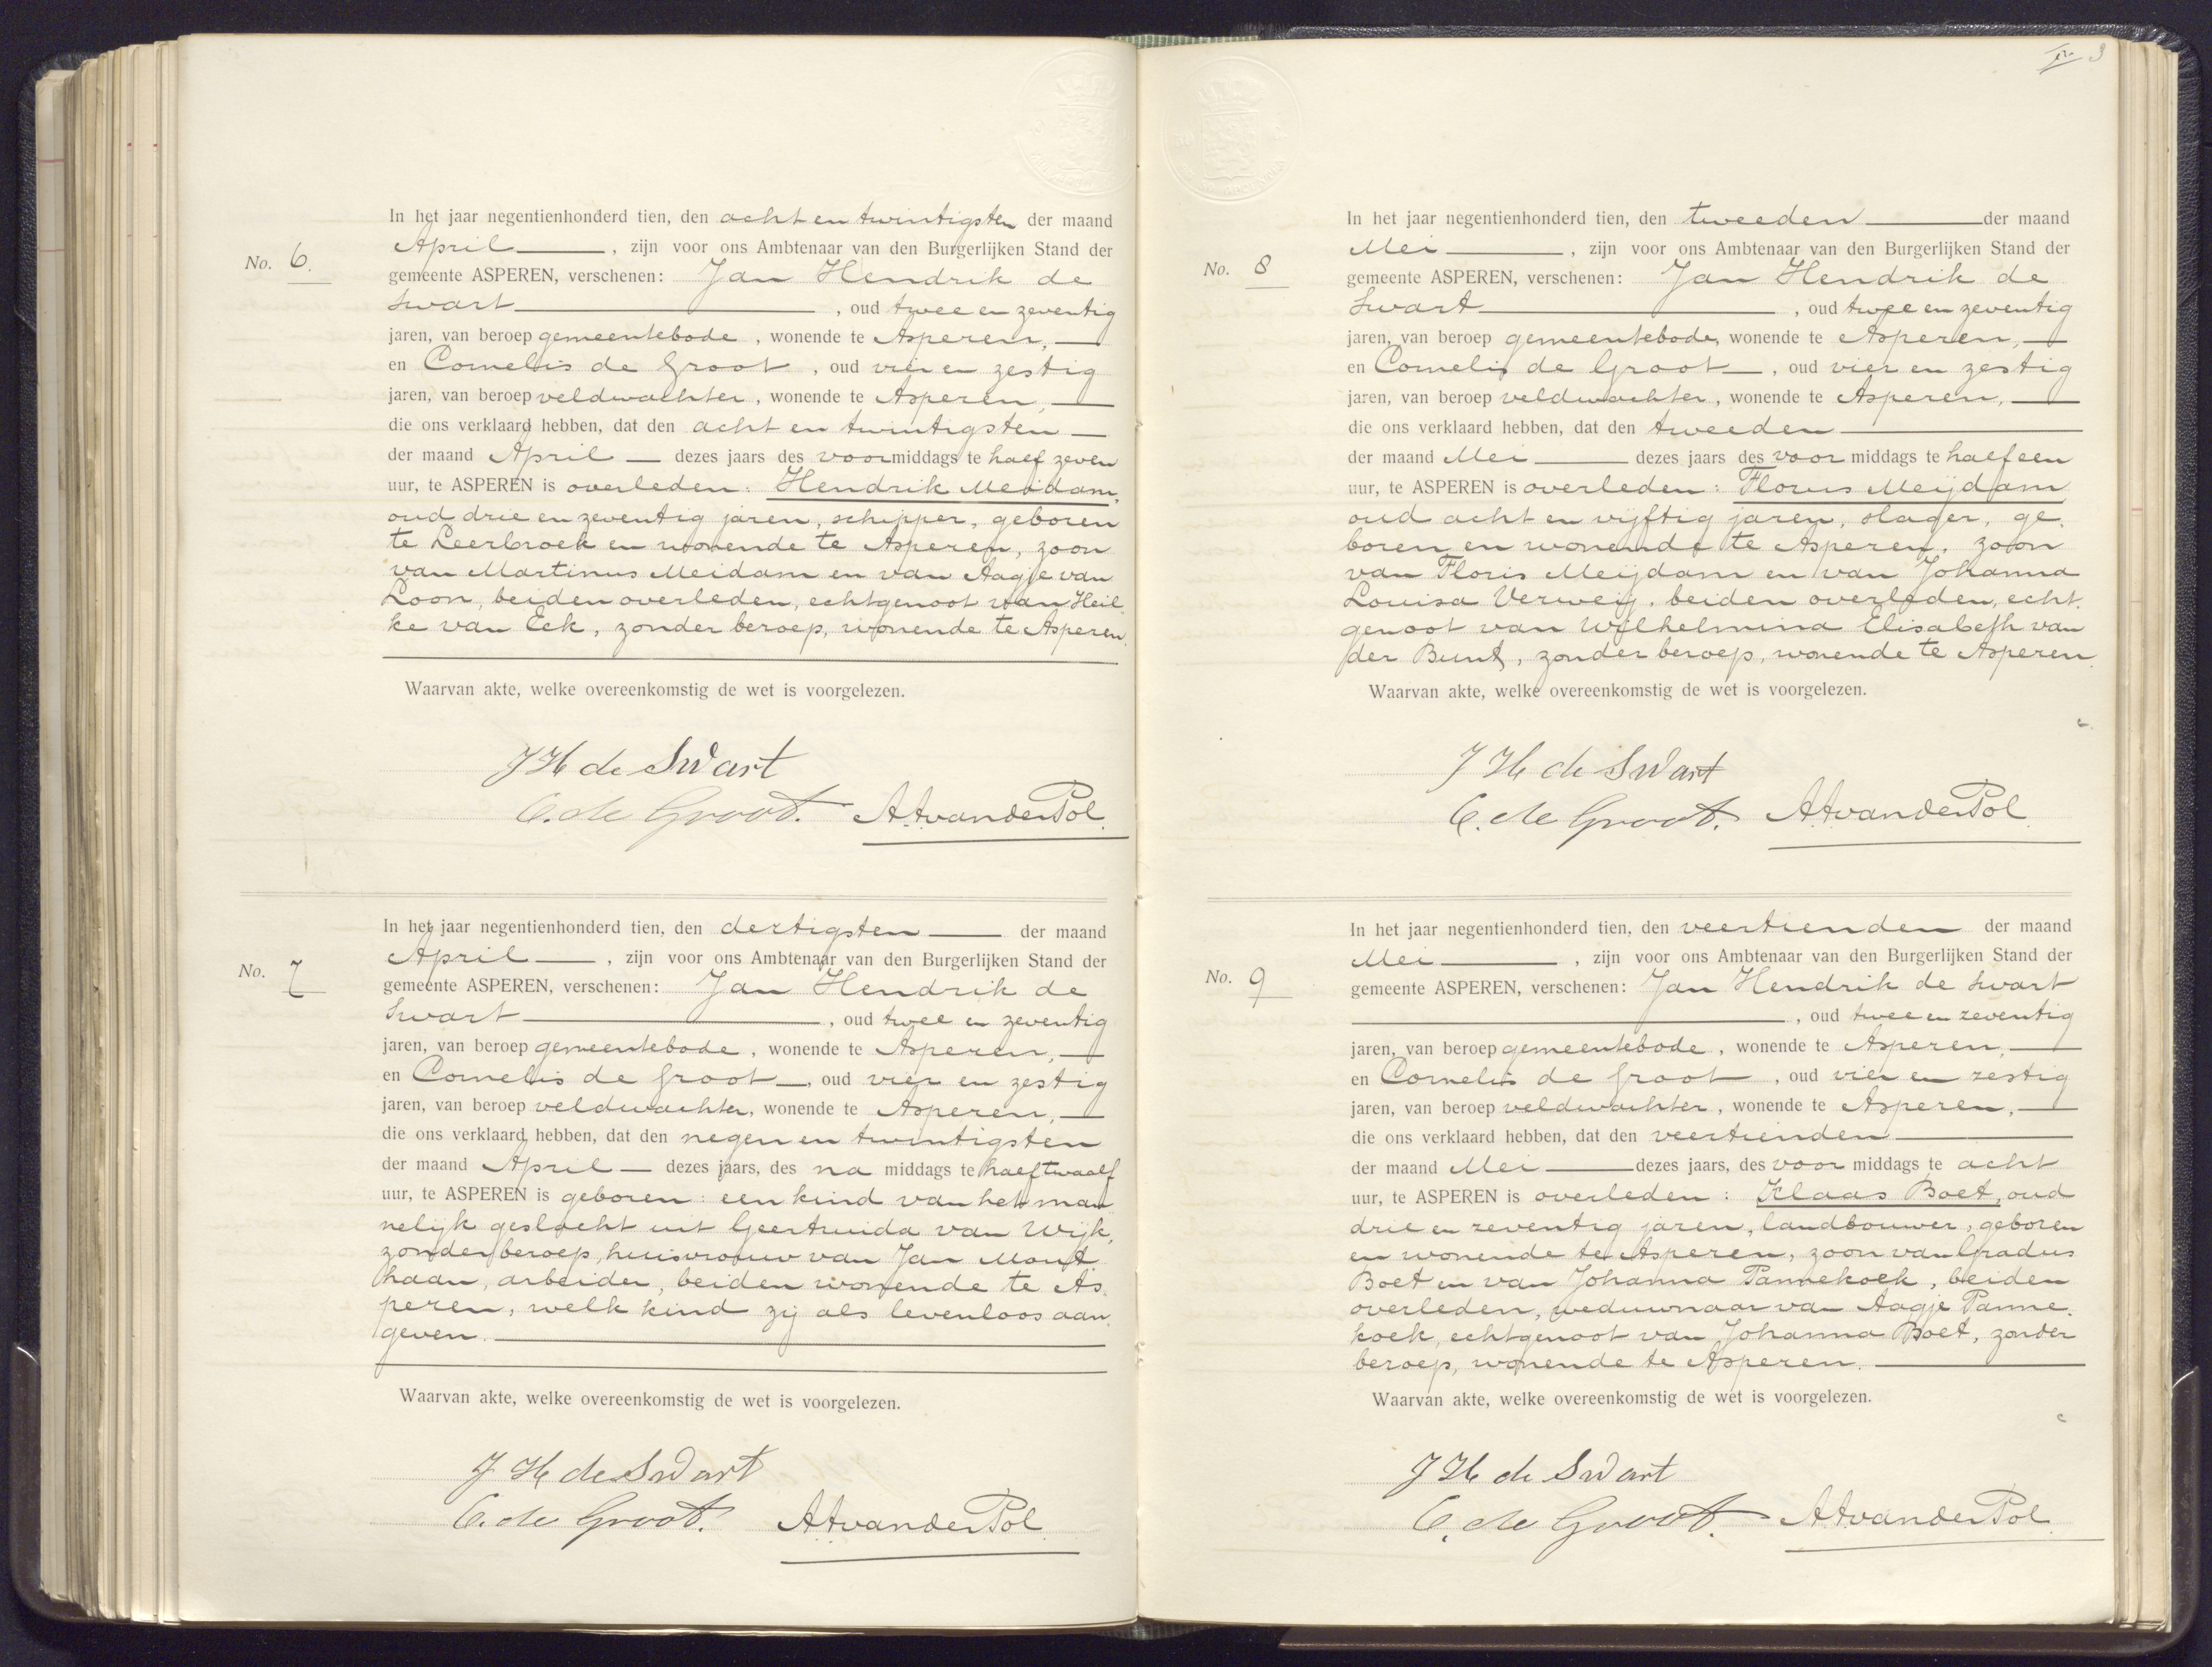 No. 6.
In het jaar negentienhonderd tien, den acht en twintigsten der maand
April, zijn voor ons Ambtenaar van den Burgerlijken Stand der
gemeente ASPEREN, verschenen: Jan Hendrik de
Swart, oud twee en zeventig
jaren, van beroep gemeentebode, wonende te Asperen,
en Cornelis de Groot, oud vier en zestig
jaren, van beroep veldwachter, wonende te Asperen,
die ons verklaard hebben, dat den acht en twintigsten
der maand April dezes jaars des voormiddags te half zeven
uur, te ASPEREN is overleden: Hendrik Meidam,
oud drie en zeventig jaren, schipper, geboren
te Leerbroek en wonende te Asperen, zoon
van Martinus Meidam en van Aagje van
Loon, beiden overleden, echtgenoot van Heil-
ke van Eck, zonder beroep, wonende te Asperen.
Waarvan akte, welke overeenkomstig de wet is voorgelezen.
J H de Swart
C. de Groot. A.A. van der Pol.
No. 7
In het jaar negentienhonderd tien, den dertigsten der maand
April, zijn voor ons Ambtenaar van den Burgerlijken Stand der
gemeente ASPEREN, verschenen: Jan Hendrik de
Swart, oud twee en zeventig
jaren, van beroep gemeentebode, wonende te Asperen,
en Cornelis de Groot, oud vier en zestig
jaren, van beroep veldwachter, wonende te Asperen,
die ons verklaard hebben, dat den negen en twintigsten
der maand April dezes jaars, des na middags te half twaalf
uur, te ASPEREN is geboren: een kind van het man-
nelijk geslacht uit Geertruida van Wijk,
zonder beroep, huisvrouw van Jan Mout-
haan, arbeider, beiden wonende te As-
peren, welk kind zij als levenloos aan-
geven.
Waarvan akte, welke overeenkomstig de wet is voorgelezen.
J H de Swart
C. de Groot. A.A. van der Pol
3
No. 8
In het jaar negentienhonderd tien, den tweeden der maand
Mei, zijn voor ons Ambtenaar van den Burgerlijken Stand der
gemeente ASPEREN, verschenen: Jan Hendrik de
Swart, oud twee en zeventig
jaren, van beroep gemeentebode, wonende te Asperen,
en Cornelis de Groot, oud vier en zestig
jaren, van beroep veldwachter, wonende te Asperen,
die ons verklaard hebben, dat den tweeden
der maand Mei dezes jaars des voor middags te half een
uur, te ASPEREN is overleden: Floris Meijdam
oud acht en vijftig jaren, slager, ge-
boren en wonende te Asperen, zoon
van Floris Meijdam en van Johanna
Louisa Verweij, beiden overleden, echt-
genoot van Wilhelmina Elisabeth van
der Bunt, zonder beroep, wonende te Asperen.
Waarvan akte, welke overeenkomstig de wet is voorgelezen.
J H de Swart
C. de Groot. A.A. van der Pol
No. 9
In het jaar negentienhonderd tien, den veertienden der maand
Mei, zijn voor ons Ambtenaar van den Burgerlijken Stand der
gemeente ASPEREN, verschenen: Jan Hendrik de Swart
, oud twee en zeventig
jaren, van beroep gemeentebode, wonende te Asperen,
en Cornelis de Groot, oud vier en zestig
jaren, van beroep veldwachter, wonende te Asperen,
die ons verklaard hebben, dat den veertienden
der maand Mei dezes jaars, des voor middags te acht
uur, te ASPEREN is overleden: Klaas Boet, oud
drie en zeventig jaren, landbouwer, geboren
en wonende te Asperen, zoon van Gradus
Boet en van Johanna Pannekoek, beiden
overleden, weduwnaar van Aagje Panne-
koek, echtgenoot van Johanna Boet, zonder
beroep, wonende te Asperen.
Waarvan akte, welke overeenkomstig de wet is voorgelezen.
J H de Swart
C. de Groot. A.A. van der Pol